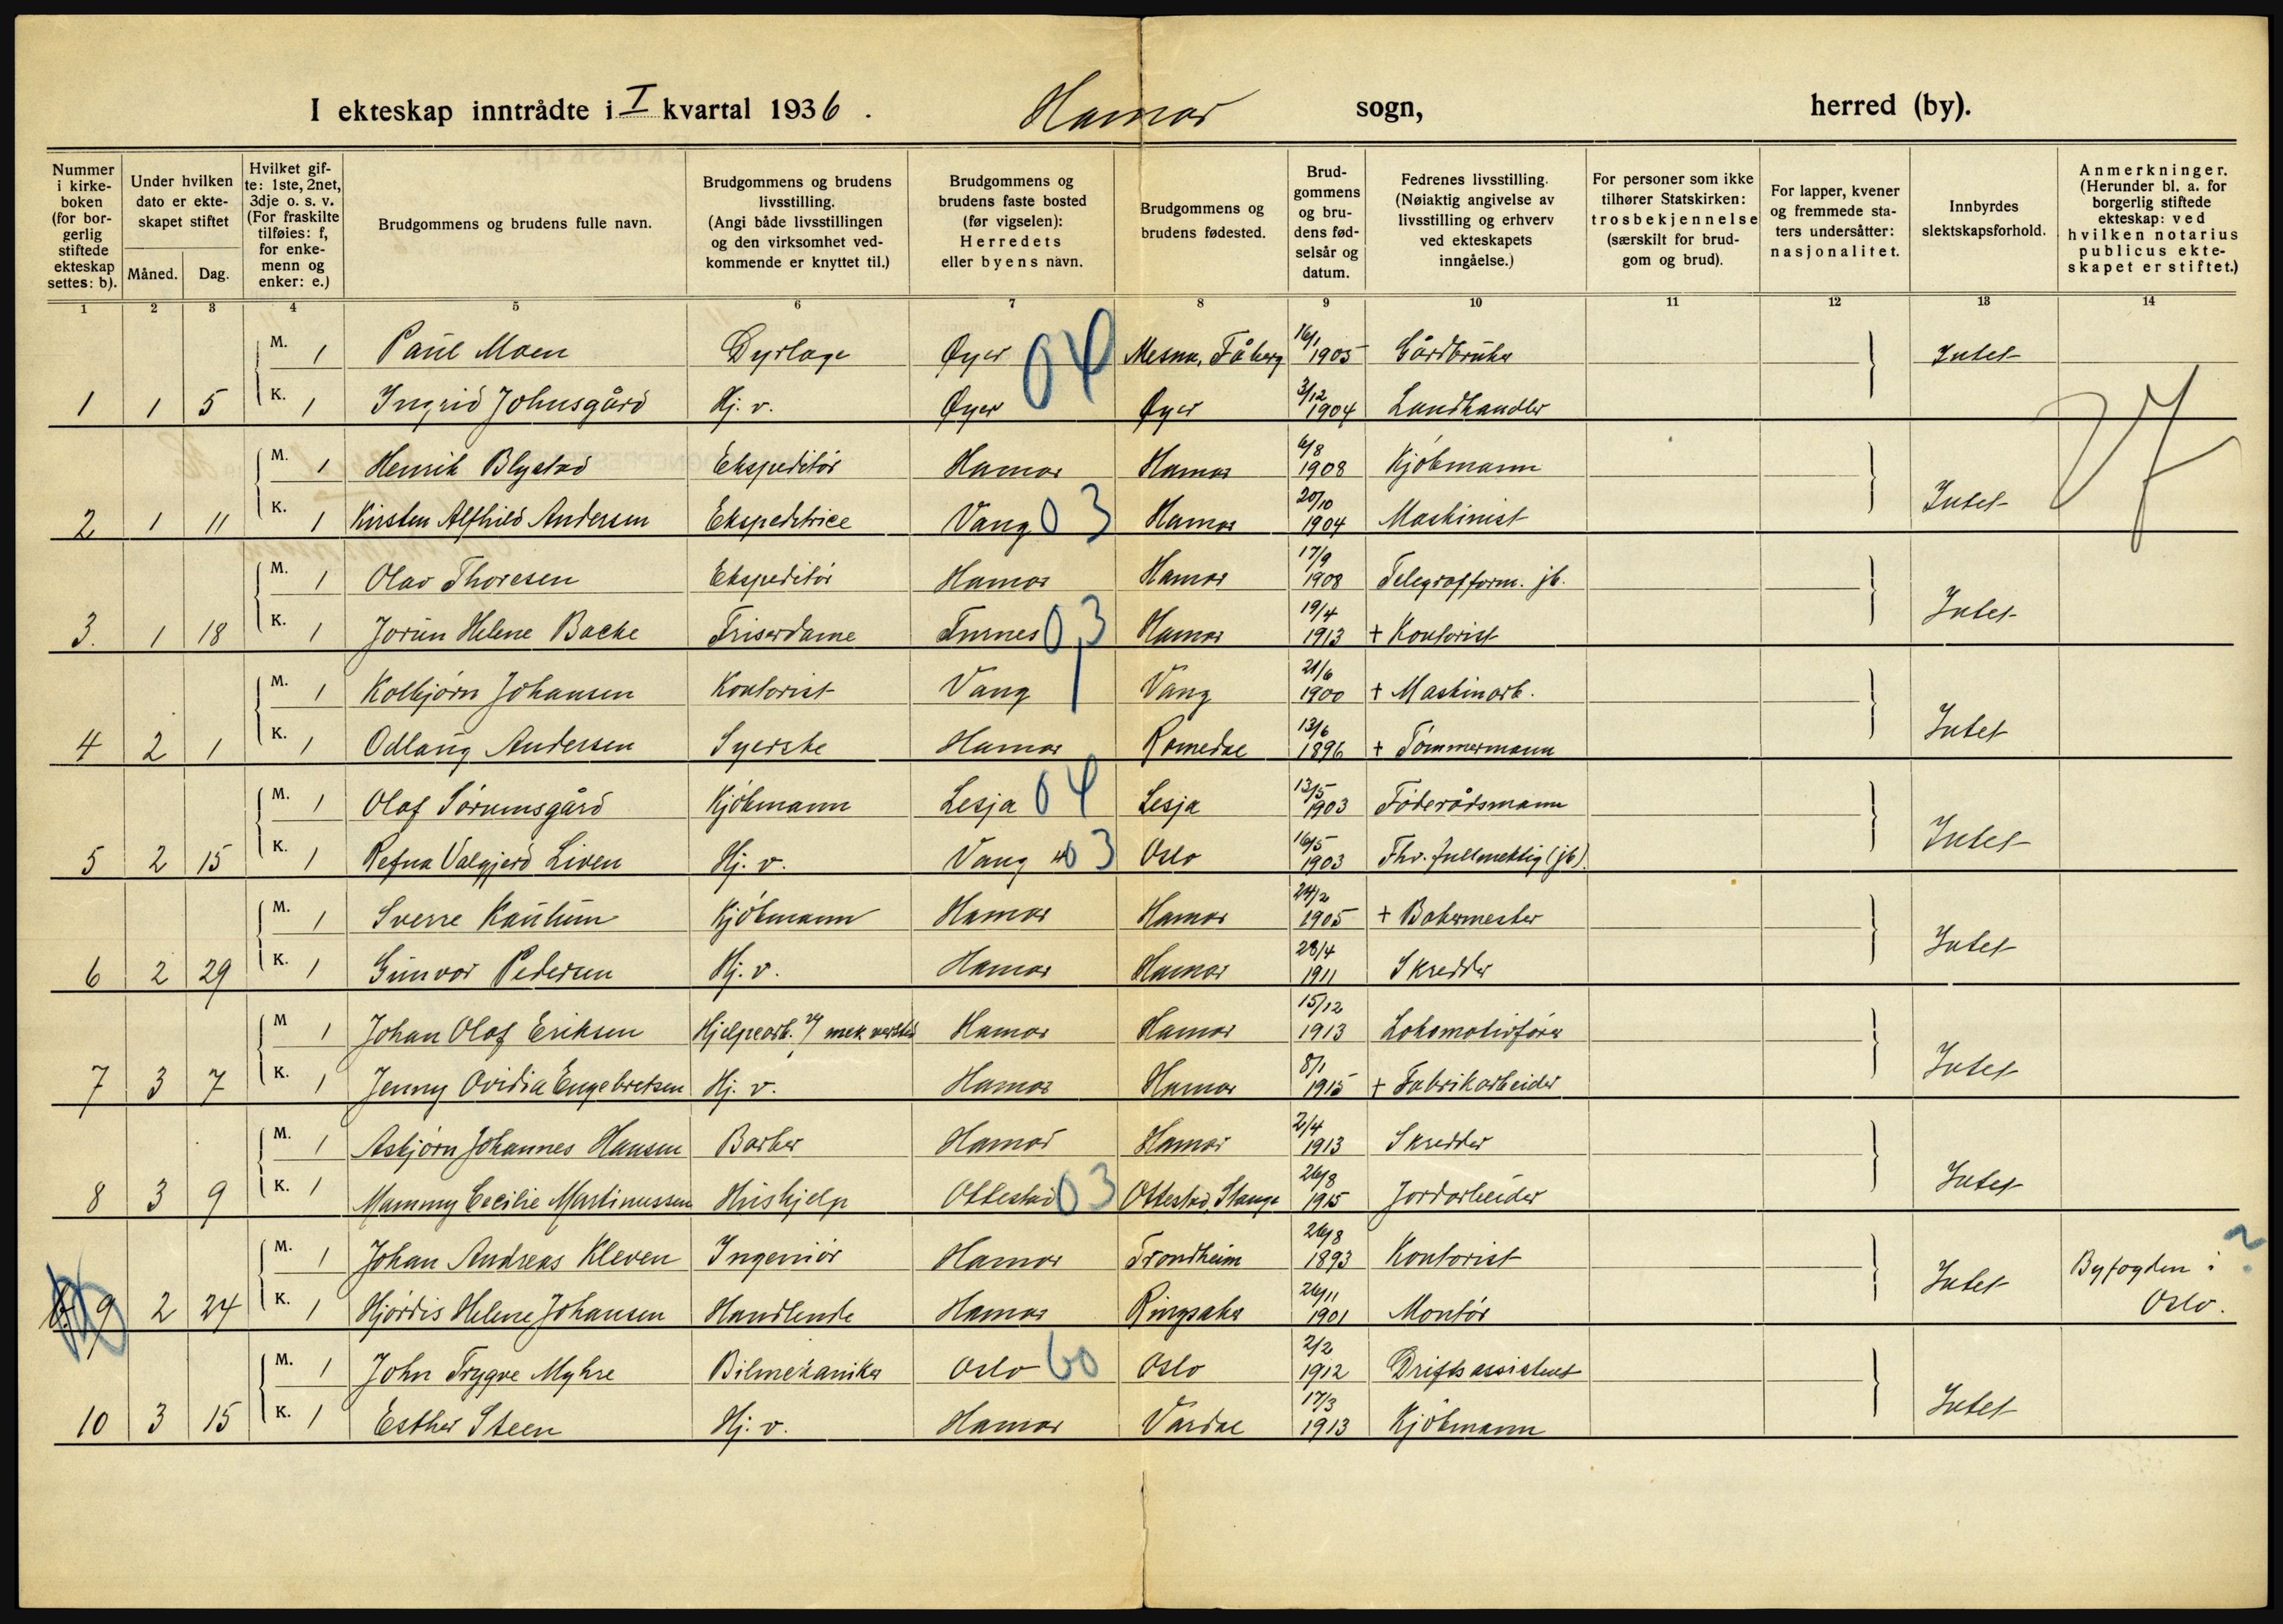 I ekteskap inntrådte i I kvartal 1936. Hamar sogn, herred (by).
Nummer i kirkeboken (for borgerlig stiftede ekteskap settes: b).
Under hvilken dato er ekteskapet stiftet
Måned. Dag.
Hvilket gifte: 1ste, 2net, 3dje o. s. v. (For fraskilte tilføies: f, for enkemenn og enker: e.)
Brudgommens og brudens fulle navn.
Brudgommens og brudens livsstilling. (Angi både livsstillingen og den virksomhet vedkommende er knyttet til.)
Brudgommens og brudens faste bosted (før vigselen): Herredets eller byens navn.
Brudgommens og brudens fødested.
Brudgommens og brudens fødselsår og datum.
Fedrenes livsstilling. (Nøiaktig angivelse av livsstilling og erhverv ved ekteskapets inngåelse.)
For personer som ikke tilhører Statskirken: trosbekjennelse (særskilt for brudgom og brud).
For lapper, kvener og fremmede staters undersåtter: nasjonalitet.
Innbyrdes slektskapsforhold.
Anmerkninger. (Herunder bl. a. for borgerlig stiftede ekteskap: ved hvilken notarius publicus ekteskapet er stiftet.)
1 2 3 4 5 6 7 8 9 10 11 12 13 14
M. 1 Paul Moen Dyrlæge Øyer 04 Mesna, Fåberg 16/1 1905 Gårdbruker Intet
1 1 5 K. 1 Ingrid Johnsgård Hj. v. Øyer Øyer 3/12 1904 Landhandler
M. 1 Henrik Blystad Ekspeditør Hamar Hamar 6/8 1908 Kjøbmann
2 1 11 K. 1 Kirsten Alfhild Andersen Ekspeditrice Vang 03 Hamar 20/10 1904 Maskinist Intet
M. 1 Olav Thoresen Ekspeditør Hamar Hamar 17/9 1908 Telegrafform. jb.
3. 1 18 K. 1 Jorun Helene Bache Friserdame Furnes 03 Hamar 19/4 1913 + Kontorist Intet
M. 1 Kolbjørn Johansen Kontorist Vang Vang 21/6 1900 + Maskinarb.
4 2 1 K. 1 Odlaug Andersen Syerske Hamar Romedal 13/6 1896 + Tømmermann Intet
M. 1 Olaf Sørumsgård Kjøbmann Lesja 04 Lesja 13/5 1903 Føderådsmann
5 2 15 K. 1 Refna Valgjerd Liven Hj. v. Vang 03 Oslo 16/5 1903 Fhv. fullmektig (jb). Intet
M. 1 Sverre Kaulum Kjøbmann Hamar Hamar 24/12 1905 + Bakermester
6 2 29 K. 1 Gunvor Pedersen Hj. v. Hamar Hamar 28/4 1911 Skredder Intet
M 1 Johan Olaf Eriksen Hjelpearb. v/ mek verksted Hamar Hamar 15/12 1913 Lokomotivfører
7 3 7 K. 1 Jenny Ovidia Engebretsen Hj. v. Hamar Hamar 8/1 1915 + Fabrikarbeider Intet
M. 1 Asbjørn Johannes Hansen Barber Hamar Hamar 2/4 1913 Skredder
8 3 9 K. 1 Mammy Cecilie Martinussen Hushjelp Ottestad 03 Ottestad, Stange 26/8 1915 Jordarbeider Intet
M. 1 Johan Andreas Kleven Ingeniør Hamar Trondheim 26/8 1893 Kontorist Byfogden i
9 2 24 K. 1 Hjørdis Helene Johansen Handlende Hamar Ringsaker 26/11 1901 Montør Intet Oslo.
M. 1 John Trygve Myhre Bilmekaniker Oslo 60 Oslo 2/2 1912 Driftsassistent
10 3 15 K. 1 Esther Steen Hj. v. Hamar Vardal 17/3 1913 Kjøbmann Intet